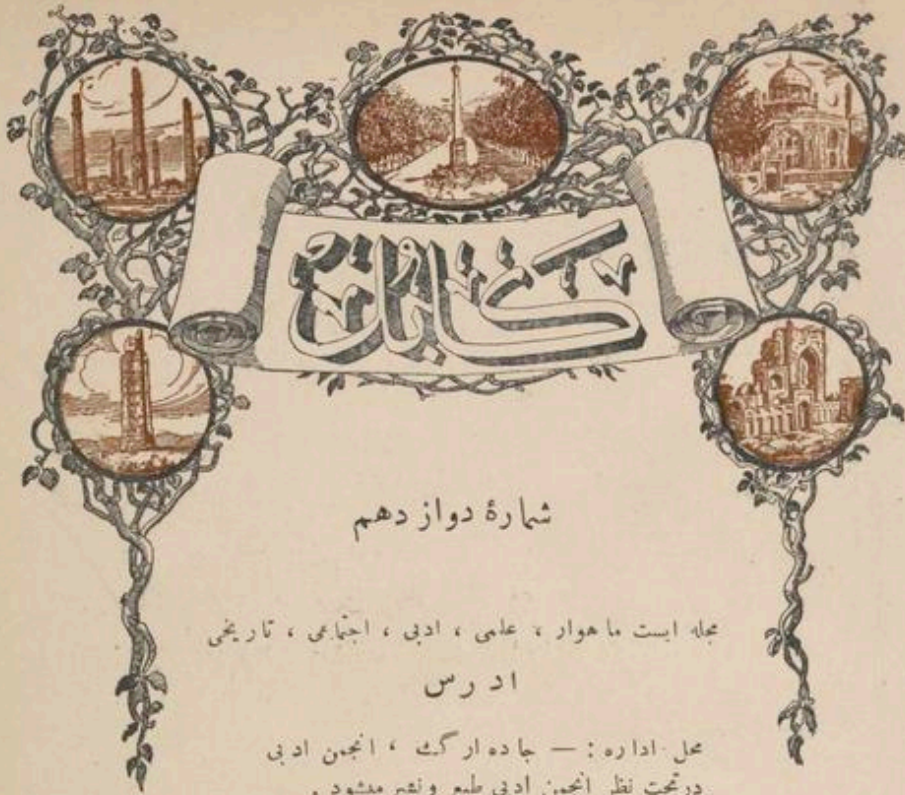 کابل
شمارهٔ دوازدهم
مجله ایست ماهوار ، علمی ، ادبی ، اجتماعی ، تاریخی
ادرس
محل اداره : — جاده ارگ ، انجمن ادبی
در تحت نظر انجمن ادبی طبع و نشر میشود .